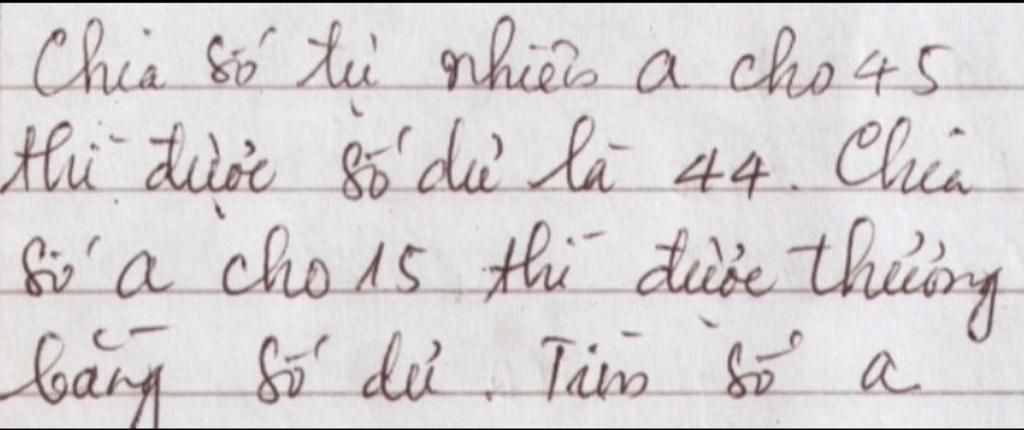 Chia số tự nhiên a cho 45
thì được số dư là 44. Chia
số a cho 15 thì được thương
bằng số dư. Tìm số a